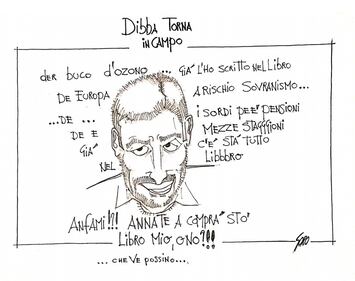 DIBBA TORNA
IN CAMPO
DER BUCO D'OZONO ... GIÀ L'HO SCRITTO NEL LIBRO
DE EUROPA
A RISCHIO SOVRANISMO...
...DE ...
DE E
GIÀ
NEL
I SORDI PE E' PENSIONI
MEZZE STAGGIONI
C'E' STÀ TUTTO
LIBBBRO
ANFAMI!!! ANNATE A COMPRA' STO'
LIBRO MIO, O NO?!!!
... CHE VE POSSINO....